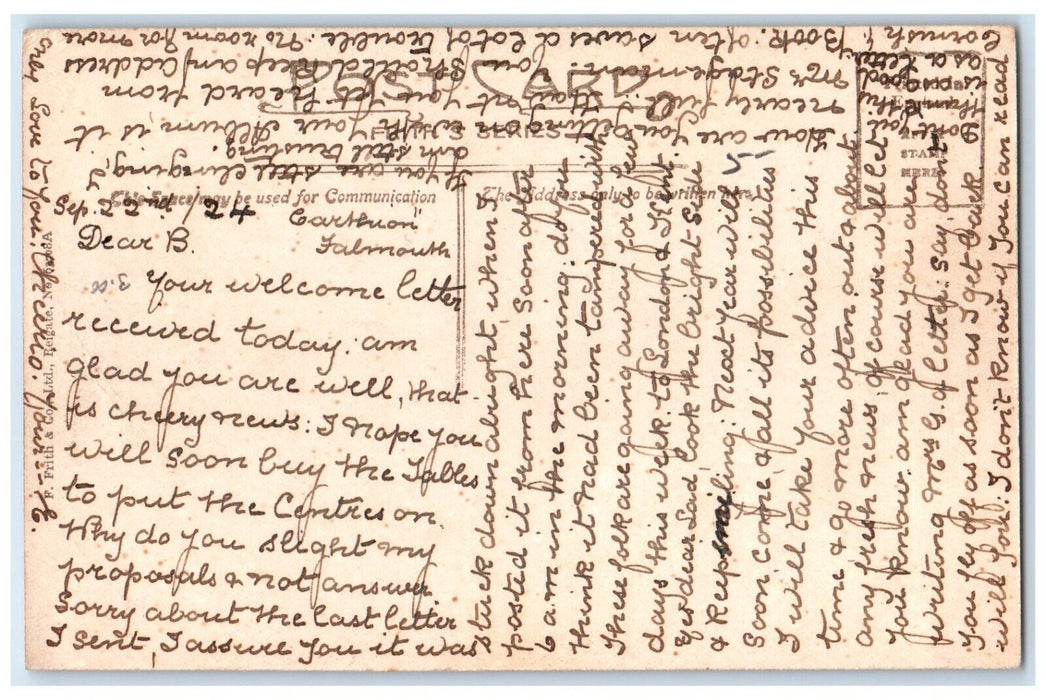 POST CARD
FRITH'S SERIES
This Space may be used for Communication
The Address only to be written here
STAMP
HERE
F. Frith & Co., Ltd., Reigate, No.
Sep. 22nd /24 Carthuon"
Falmouth
Dear B.
Your welcome letter
received today: am
glad you are well, that
is cheery news: I hope you
will soon buy the Tables
to put the Centres on.
Why do you slight my
proposals & not answer
Sorry about the last letter
I sent, I assure you it was
stuck down alright when I
posted it from here soon after
6 a.m in the morening: do you
think it had been tampered with
These folk are going away for a few
days this week to London & I felt
dear Lad look the bright side
& keep smiling: Next year will
soon come & all its possibilities
I will take your advice this
time & go more often out & about
any fresh news of course will let
you know: am glad you are
writing Mrs G. a letter: Say, don't
you fly off as soon as I get back
will you: I don't know if you can read
Cornish
If you are still clinging, I
am still trusting
How are you filling your Album, is it
nearly full. Have you yet heard from
Mrs Stageman. You should keep an address
Book: often saves a lot of trouble: No room for more
only Love to you: Cheerio: Your